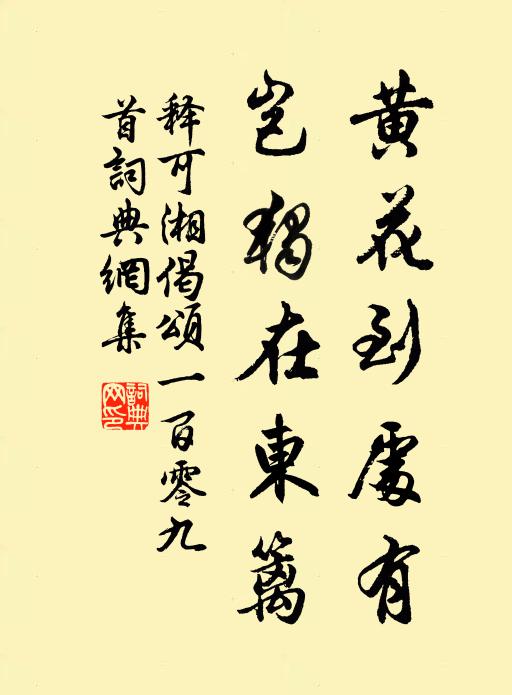 黄花到處有
岂獨在東籬
释可湘偈頌一百零九
首詞典網集
詞典
网印